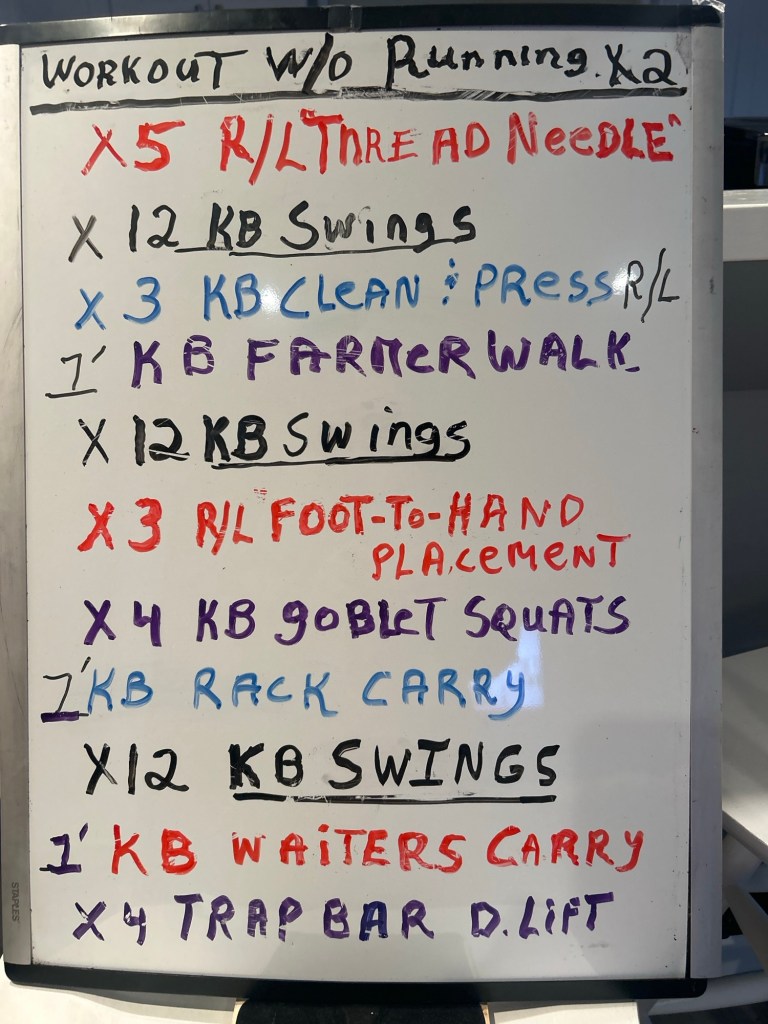 WORKOUT W/O Running X2
X5 R/L "THREAD NEEDLE"
X 12 KB Swings
X 3 KB CLEAN & PRESS R/L
1' KB FARMER WALK
X 12 KB Swings
X3 R/L FOOT-TO-HAND
PLACEMENT
X 4 KB goBLET SQUATS
1' KB RACK CARRY
X12 KB SWINGS
1' KB WAiTERS CARRY
X 4 TRAP BAR D.LiFT
STAPLES